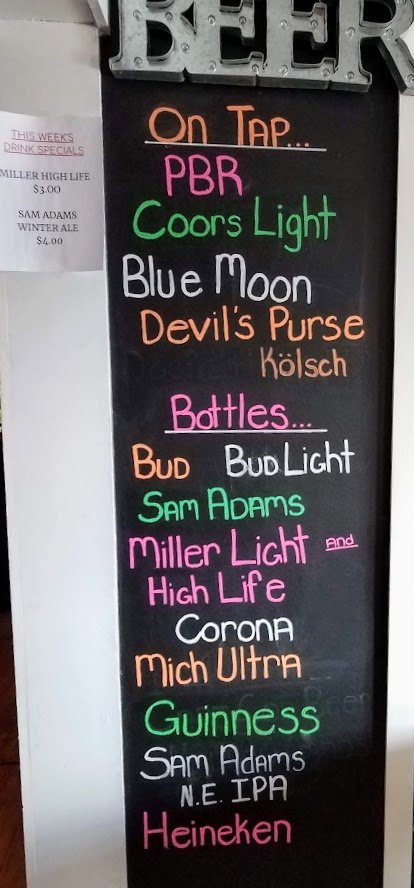 BEER
THIS WEEK'S
DRINK SPECIALS
MILLER HIGH LIFE
$3.00
SAM ADAMS
WINTER ALE
$4.00
On Tap...
PBR
Coors Light
Blue Moon
Devil's Purse
Kölsch
Bottles...
Bud Bud Light
Sam Adams
Miller Light and
High Life
Corona
Mich Ultra
Guinness
Sam Adams
N.E. IPA
Heineken